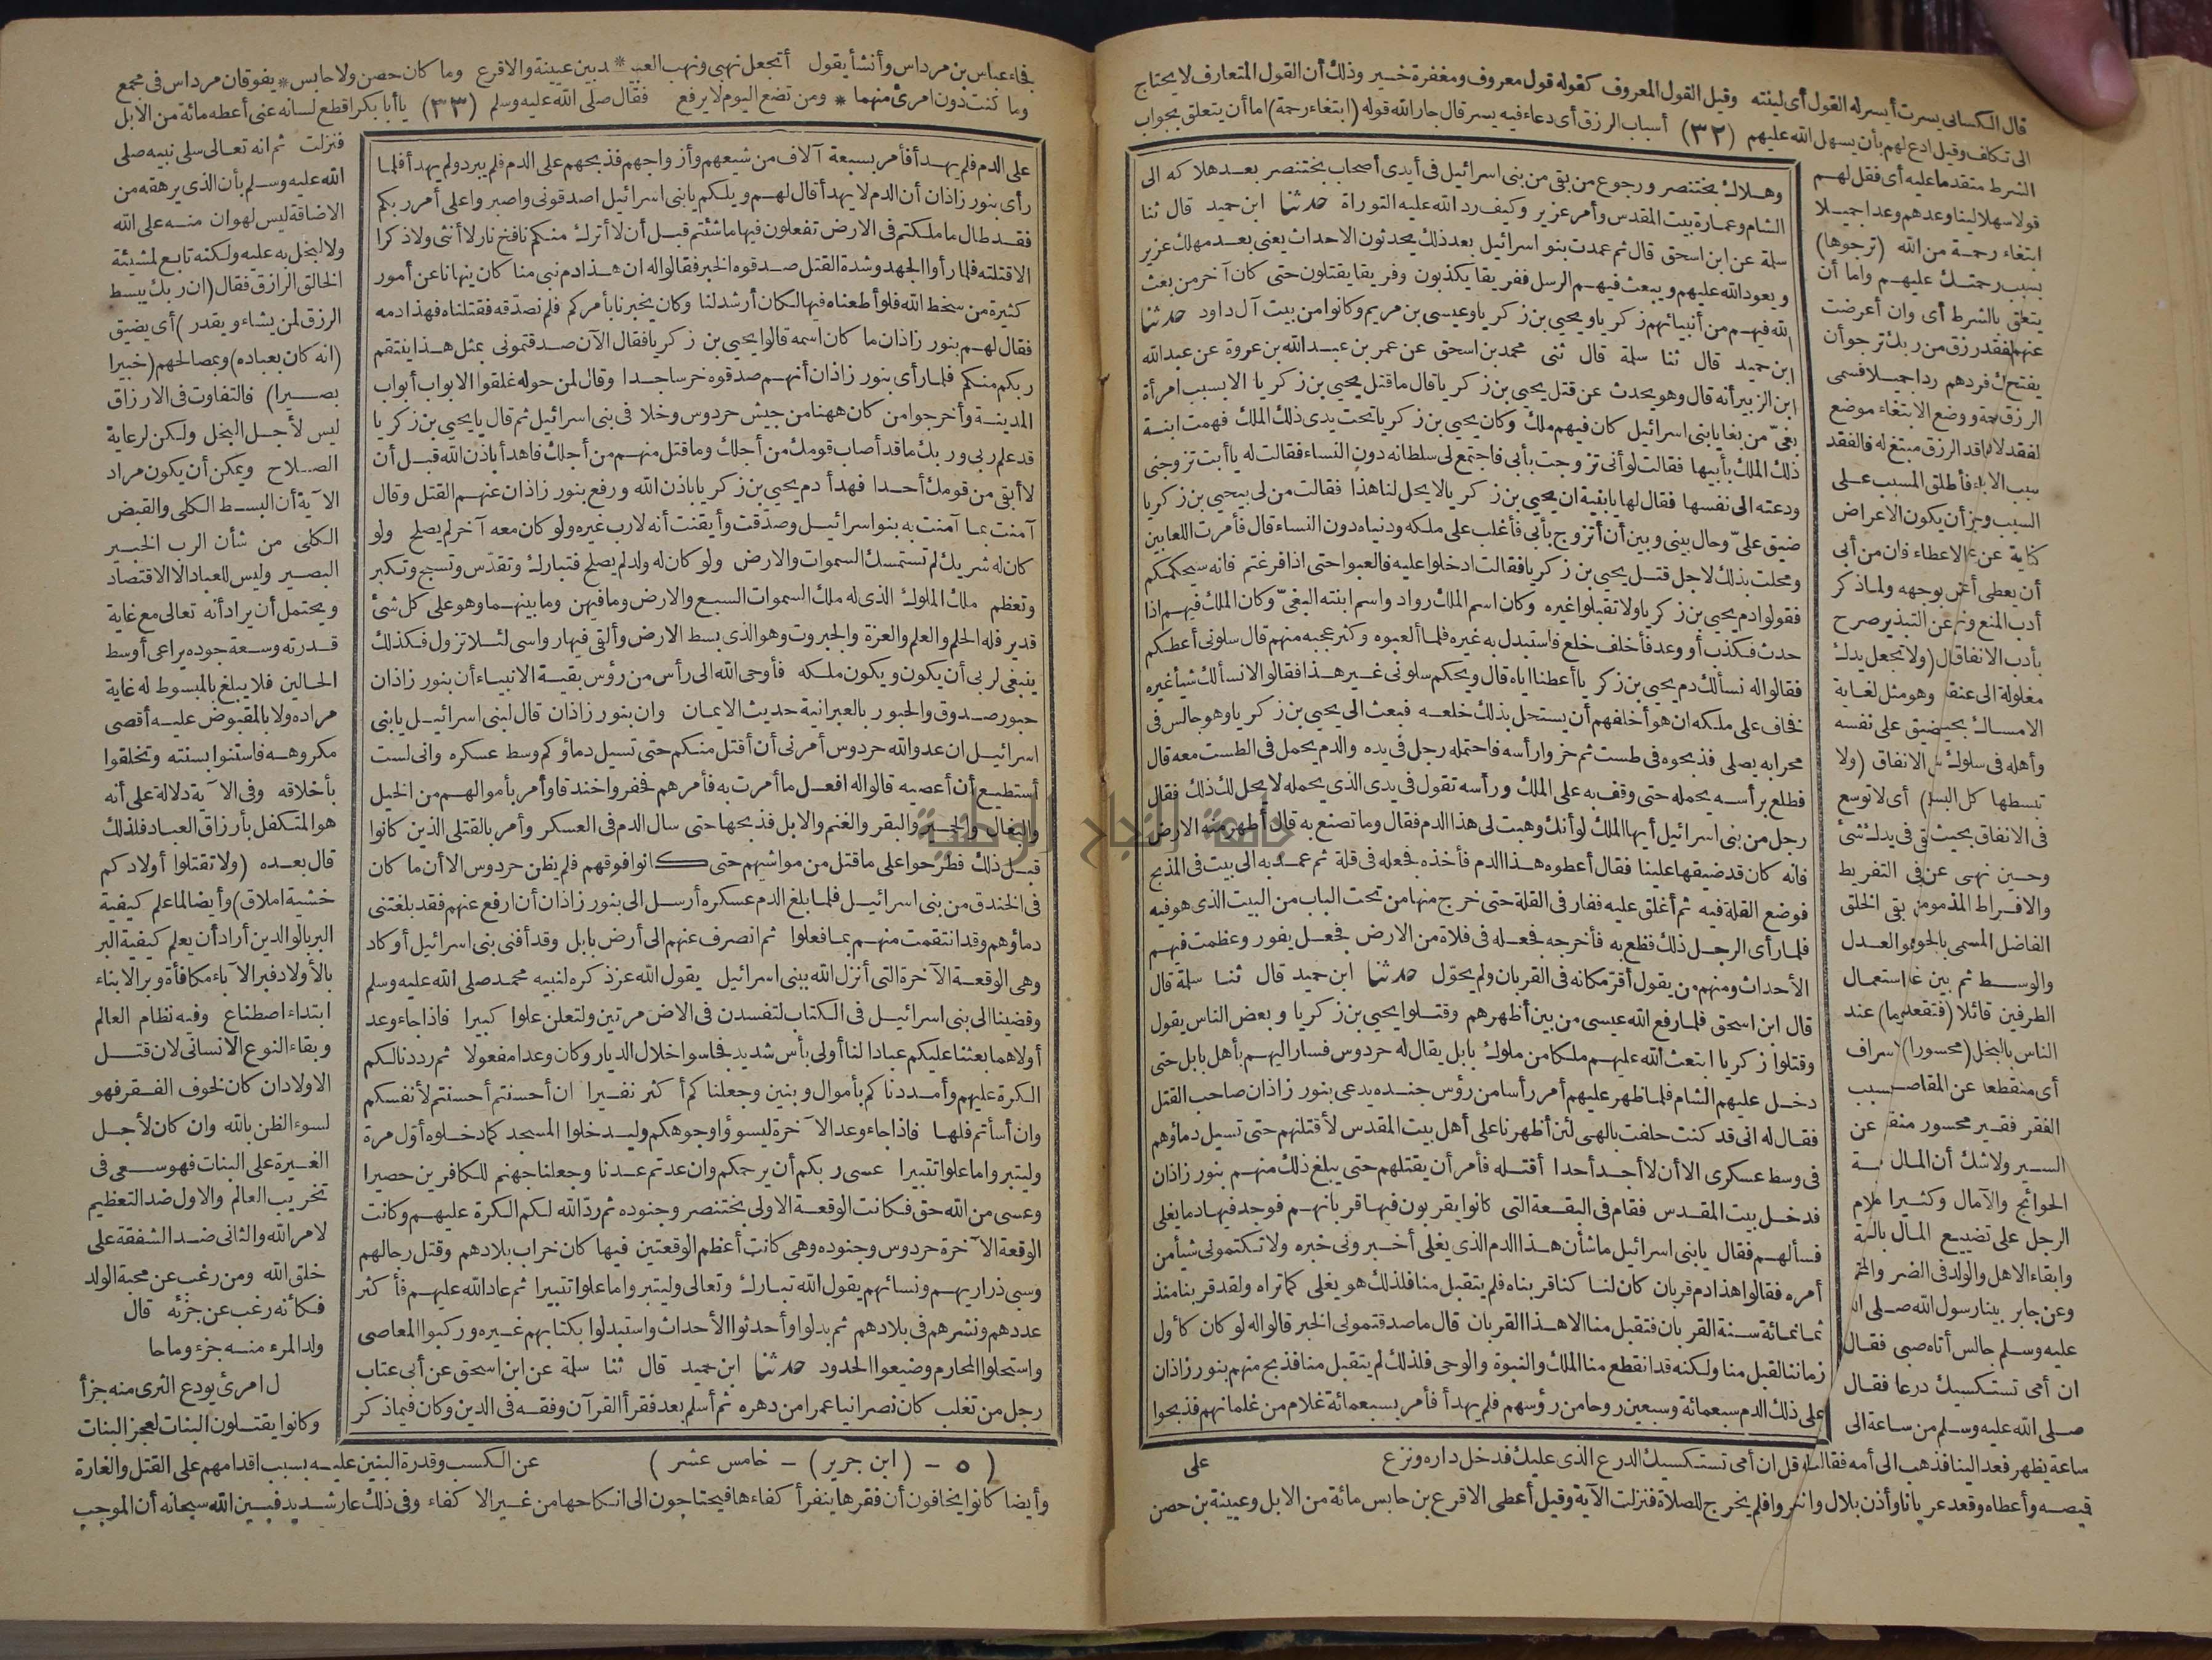 قال الكسائى يسرت أيسر له القول أى لينته وقيل القول المعروف كقوله قول معروف ومغفرة خير وذلك أن القول المتعارف لا يحتاج
الى تكلف وقيل ادع لهم بأن يسهل الله عليهم (٣٢) أسباب الرزق أى دعاء فيه يسر قال جار الله قوله (ابتغاء رحمة) اما أن يتعلق بجواب
وهلاك بختنصر ورجوع من بقى من بنى اسرائيل فى أيدى أصحاب بختنصر بعد هلاكه الى
الشام وعمارة بيت المقدس وأمر عزير وكيف رد الله عليه التوراة حدثنا ابن حميد قال ثنا
سلمة عن ابن اسحق قال ثم عمدت بنو اسرائيل بعد ذلك يحدثون الاحداث يعنى بعد مهلك عزير
ويعود الله عليهم ويبعث فيهم الرسل ففريقا يكذبون وفريقا يقتلون حتى كان آخر من بعث
الله فيهم من أنبيائهم زكريا ويحيى بن زكريا وعيسى بن مريم وكانوا من بيت آل داود حدثنا
ابن حميد قال ثنا سلمة قال ثنى محمد بن اسحق عن عمر بن عبد الله بن عروة عن عبد الله
ابن الزبير أنه قال وهو يحدث عن قتل يحيى بن زكريا قال ما قتل يحيى بن زكريا الا بسبب امرأة
بغىّ من بغايا بنى اسرائيل كان فيهم ملك وكان يحيى بن زكريا تحت يدى ذلك الملك فهمت ابنة
ذلك الملك بأبيها فقالت لو أنى تزوجت بأبى فاجتمع لى سلطانه دون النساء فقالت له يا أبت تزوجنى
ودعته الى نفسها فقال لها يا بنية ان يحيى بن زكريا لا يحل لنا هذا فقالت من لى بيحيى بن زكريا
ضيق علىّ وحال بينى وبين أن أتزوج بأبى فأغلب على ملكه ودنياه دون النساء قال فأمرت اللعابين
ومحلت بذلك لاجل قتل يحيى بن زكريا فقالت ادخلوا عليه فالعبوا حتى اذا فرغتم فانه سيحكمكم
فقولوا دم يحيى بن زكريا ولا تقبلوا غيره وكان اسم الملك رواد واسم ابنته البغىّ وكان الملك فيهم اذا
حدث فكذب أو وعد فأخلف خلع فاستبدل به غيره فلما ألعبوه وكثر عجبه منهم قال سلونى أعطكم
فقالوا له نسألك دم يحيى بن زكريا أعطنا اياه قال ويحكم سلونى غير هذا فقالوا لا نسألك شيأ غيره
فخاف على ملكه ان هو أخلفهم أن يستحل بذلك خلعه فبعث الى يحيى بن زكريا وهو جالس فى
محرابه يصلى فذبحوه فى طست ثم حزوا رأسه فاحتمله رجل فى يده والدم يحمل فى الطست معه قال
فطلع برأسه يحمله حتى وقف به على الملك ورأسه تقول فى يدى الذى يحمله لا يحل لك ذلك فقال
رجل من بنى اسرائيل أيها الملك لو أنك وهبت لى هذا الدم فقال وما تصنع به قال أطهر منه الارض
فانه كان قد ضيقها علينا فقال أعطوه هذا الدم فأخذه فجعله فى قلة ثم عمد به الى بيت فى المذبح
فوضع القلة فيه ثم أغلق عليه ففار فى القلة حتى خرج منها من تحت الباب من البيت الذى هو فيه
فلما رأى الرجل ذلك فظع به فأخرجه فجعله فى فلاة من الارض فجعل يفور وعظمت فيهم
الأحداث ومنهم من يقول أقر مكانه فى القربان ولم يحوّل حدثنا ابن حميد قال ثنا سلمة قال
قال ابن اسحق فلما رفع الله عيسى من بين أظهرهم وقتلوا يحيى بن زكريا وبعض الناس يقول
وقتلوا زكريا ابتعث الله عليهم ملكا من ملوك بابل يقال له خردوس فسار اليهم بأهل بابل حتى
دخل عليهم الشام فلما ظهر عليهم أمر رأسا من رؤس جنده يدعى بنور زاذان صاحب القتل
فقال له انى قد كنت حلفت بالهى لئن أظهرنا على أهل بيت المقدس لأقتلنهم حتى تسيل دماؤهم
فى وسط عسكرى الا أن لا أجد أحدا أقتله فأمر أن يقتلهم حتى يبلغ ذلك منهم بنور زاذان
فدخل بيت المقدس فقام فى البقعة التى كانوا يقربون فيها قربانهم فوجد فيها دما يغلى
فسألهم فقال يا بنى اسرائيل ما شأن هذا الدم الذى يغلى أخبرونى خبره ولا تكتمونى شيأ من
أمره فقالوا هذا دم قربان كان لنا كنا قربناه فلم يتقبل منا فلذلك هو يغلى كما تراه ولقد قربنا منذ
ثمانمائة سنة القربان فتقبل منا الا هذا القربان قال ما صدقتمونى الخبر قالوا له لو كان كأول
زماننا لقبل منا ولكنه قد انقطع منا الملك والنبوة والوحى فلذلك لم يتقبل منا فذبح منهم بنور زاذان
على ذلك الدم سبعمائة وسبعين روحا من رؤسهم فلم يهدأ فأمر بسبعمائة غلام من غلمانهم فذبحوا
الشرط متقدما عليه أى فقل لهم
قولا سهلا لينا وعدهم وعدا جميلا
ابتغاء رحمة من الله (ترجوها)
بسبب رحمتك عليهم واما أن
يتعلق بالشرط أى وان أعرضت
عنهم لفقد رزق من ربك ترجو أن
يفتح لك فردهم ردا جميلا فسمى
الرزق رحمة ووضع الابتغاء موضع
لفقد لان فاقد الرزق مبتغ له فالفقد
سبب الابتغاء فأطلق المسبب على
السبب وجوز أن يكون الاعراض
كناية عن عدم الاعطاء فان من أبى
أن يعطى أعرض بوجهه ولما ذكر
أدب المنع ونهى عن التبذير صرح
بأدب الانفاق قال (ولا تجعل يدك
مغلولة الى عنقك وهو مثل لغاية
الامساك بحيث يضيق على نفسه
وأهله فى سلوك الانفاق (ولا
تبسطها كل البسط) أى لا توسع
فى الانفاق بحيث لا يبقى فى يدك شئ
وحين نهى عن فى التفريط
والافراط المذمومين بقى الخلق
الفاضل المسمى بالجود وهو العدل
والوسط ثم بين غاية استعمال
الطرفين قائلا (فتقعد ملوما) عند
الناس بالبخل (محسورا) اسراف
أى منقطعا عن المقاصد بسبب
الفقر فقير محسور منقطع عن
السير ولا شك أن المال
الحوائج والآمال وكثيرا ما يلام
الرجل على تضييع المال بالكلية
وابقاء الاهل والولد فى الضر والمحنة
وعن جابر بينا رسول الله صلى الله
عليه وسلم جالس أتاه صبى فقال
ان أمى تستكسيك درعا فقال
صلى الله عليه وسلم من ساعة الى
ساعة يظهر فعد الينا فذهب الى أمه فقالت له قل ان أمى تستكسيك الدرع الذى عليك فدخل داره ونزع
على
قميصه وأعطاه وقعد عريانا وأذن بلال وانتظروا فلم يخرج للصلاة فنزلت الآية وقيل أعطى الاقرع بن حابس مائة من الابل وعيينة بن حصن
فجاء عباس بن مرداس وأنشأ يقول أتجعل نهبى ونهب العبيد * د بين عيينة والاقرع وما كان حصن ولا حابس * يفوقان مرداس فى مجمع
وما كنت دون امرئ منهما * ومن تضع اليوم لا يرفع فقال صلى الله عليه وسلم (٣٣) يا أبا بكر اقطع لسانه عنى أعطه مائة من الابل
على الدم فلم يهدأ فأمر بسبعة آلاف من شيعهم وأزواجهم فذبحهم على الدم فلم يبرد ولم يهدأ فلما
رأى بنور زاذان أن الدم لا يهدأ قال لهم ويلكم يا بنى اسرائيل اصدقونى واصبروا على أمر ربكم
فقد طال ما ملكتم فى الارض تفعلون فيها ما شئتم قبل أن لا أترك منكم نافخ نار لا أنثى ولا ذكرا
الا قتلته فلما رأوا الجهد وشدة القتل صدقوه الخبر فقالوا له ان هذا دم نبى منا كان ينهانا عن أمور
كثيرة من سخط الله فلو أطعناه فيها لكان أرشد لنا وكان يخبرنا بأمركم فلم نصدّقه فقتلناه فهذا دمه
فقال لهم بنور زاذان ما كان اسمه قالوا يحيى بن زكريا فقال الآن صدقتمونى بمثل هذا ينتقم
ربكم منكم فلما رأى بنور زاذان أنهم صدقوه خر ساجدا وقال لمن حوله غلقوا الابواب أبواب
المدينة وأخرجوا من كان ههنا من جيش خردوس وخلا فى بنى اسرائيل ثم قال يا يحيى بن زكريا
قد علم ربى وربك ما قد أصاب قومك من أجلك وما قتل منهم من أجلك فاهدأ باذن الله قبل أن
لا أبقى من قومك أحدا فهدأ دم يحيى بن زكريا باذن الله ورفع بنور زاذان عنهم القتل وقال
آمنت بما آمنت به بنو اسرائيل وصدّقت وأيقنت أنه لا رب غيره ولو كان معه آخر لم يصلح ولو
كان له شريك لم تستمسك السموات والارض ولو كان له ولد لم يصلح فتبارك وتقدّس وتسبح وتكبر
وتعظم ملك الملوك الذى له ملك السموات السبع والارض وما فيهن وما بينهما وهو على كل شئ
قدير فله الحلم والعلم والعزة والجبروت وهو الذى بسط الارض وألقى فيها رواسى لئلا تزول فكذلك
ينبغى لربى أن يكون ويكون ملكه فأوحى الله الى رأس من رؤس بقية الانبياء أن بنور زاذان
حبور صدوق والحبور بالعبرانية حديث الايمان وان بنور زاذان قال لبنى اسرائيل يا بنى
اسرائيل ان عدو الله خردوس أمرنى أن أقتل منكم حتى تسيل دماؤكم وسط عسكره وانى لست
أستطيع أن أعصيه قالوا له افعل ما أمرت به فأمرهم فحفروا خندقا وأمر بأموالهم من الخيل
والبغال والحمير والبقر والغنم والابل فذبحها حتى سال الدم فى العسكر وأمر بالقتلى الذين كانوا
قبل ذلك فطرحوا على ما قتل من مواشيهم حتى كانوا فوقهم فلم يظن خردوس الا أن ما كان
فى الخندق من بنى اسرائيل فلما بلغ الدم عسكره أرسل الى بنور زاذان أن ارفع عنهم فقد بلغتنى
دماؤهم وقد انتقمت منهم بما فعلوا ثم انصرف عنهم الى أرض بابل وقد أفنى بنى اسرائيل أو كاد
وهى الوقعة الآخرة التى أنزل الله ببنى اسرائيل يقول الله عز ذكره لنبيه محمد صلى الله عليه وسلم
وقضينا الى بنى اسرائيل فى الكتاب لتفسدن فى الارض مرتين ولتعلن علوا كبيرا فاذا جاء وعد
أولاهما بعثنا عليكم عبادا لنا أولى بأس شديد فجاسوا خلال الديار وكان وعدا مفعولا ثم رددنا لكم
الكرة عليهم وأمددناكم بأموال وبنين وجعلناكم أكثر نفيرا ان أحسنتم أحسنتم لأنفسكم
وان أسأتم فلها فاذا جاء وعد الآخرة ليسوؤا وجوهكم وليدخلوا المسجد كما دخلوه أوّل مرة
وليتبروا ما علوا تتبيرا عسى ربكم أن يرحمكم وان عدتم عدنا وجعلنا جهنم للكافرين حصيرا
وعسى من الله حق فكانت الوقعة الاولى بختنصر وجنوده ثم ردّ الله لكم الكرة عليهم وكانت
الوقعة الآخرة خردوس وجنوده وهى كانت أعظم الوقعتين فيها كان خراب بلادهم وقتل رجالهم
وسبى ذراريهم ونسائهم يقول الله تبارك وتعالى وليتبروا ما علوا تتبيرا ثم عاد الله عليهم فأكثر
عددهم ونشرهم فى بلادهم ثم بدلوا وأحدثوا الأحداث واستبدلوا بكتابهم غيره وركبوا المعاصى
واستحلوا المحارم وضيعوا الحدود حدثنا ابن حميد قال ثنا سلمة عن ابن اسحق عن أبى عتاب
رجل من تغلب كان نصرانيا عمرا من دهره ثم أسلم بعد فقرأ القرآن وفقه فى الدين وكان فيما ذكر
فنزلت ثم انه تعالى سلى نبيه صلى
الله عليه وسلم بأن الذى يرهقه من
الاضاقة ليس لهوان منه على الله
ولا لبخل به عليه ولكنه تابع لمشيئة
الخالق الرازق فقال (ان ربك يبسط
الرزق لمن يشاء ويقدر) أى يضيق
(انه كان بعباده) وبمصالحهم (خبيرا
بصيرا) فالتفاوت فى الارزاق
ليس لأجل البخل ولكن لرعاية
الصلاح ويمكن أن يكون مراد
الآية أن البسط الكلى والقبض
الكلى من شأن الرب الخبير
البصير وليس للعباد الا الاقتصاد
ويحتمل أن يراد أنه تعالى مع غاية
قدرته وسعة جوده يراعى أوسط
الحالين فلا يبلغ بالمبسوط له غاية
مراده ولا بالمقبوض عليه أقصى
مكروهه فاستنوا بسنته وتخلقوا
بأخلاقه وفى الآية دلالة على أنه
هو المتكفل بأرزاق العباد فلذلك
قال بعده (ولا تقتلوا أولادكم
خشية املاق) وأيضا لما علم كيفية
البر بالوالدين أراد أن يعلم كيفية البر
بالأولاد فبر الآباء مكافأة وبر الابناء
ابتداء اصطناع وفيه نظام العالم
وبقاء النوع الانسانى لان قتل
الاولاد ان كان لخوف الفقر فهو
لسوء الظن بالله وان كان لأجل
الغيرة على البنات فهو سعى فى
تخريب العالم والاول ضد التعظيم
لامر الله والثانى ضد الشفقة على
خلق الله ومن رغب عن محبة الولد
فكأنه رغب عن جزئه قال
ولد المرء منه جزء وما حا
ل امرئ يودع الثرى منه جزأ
وكانوا يقتلون البنات لعجز البنات
(٥ - (ابن جرير) - خامس عشر) عن الكسب وقدرة البنين عليه بسبب اقدامهم على القتل والغارة
وأيضا كانوا يخافون أن فقرها ينفر أكفاءها فيحتاجون الى انكاحها من غير الاكفاء وفى ذلك عار شديد فبين الله سبحانه أن الموجب
جامعة النجاح الوطنية